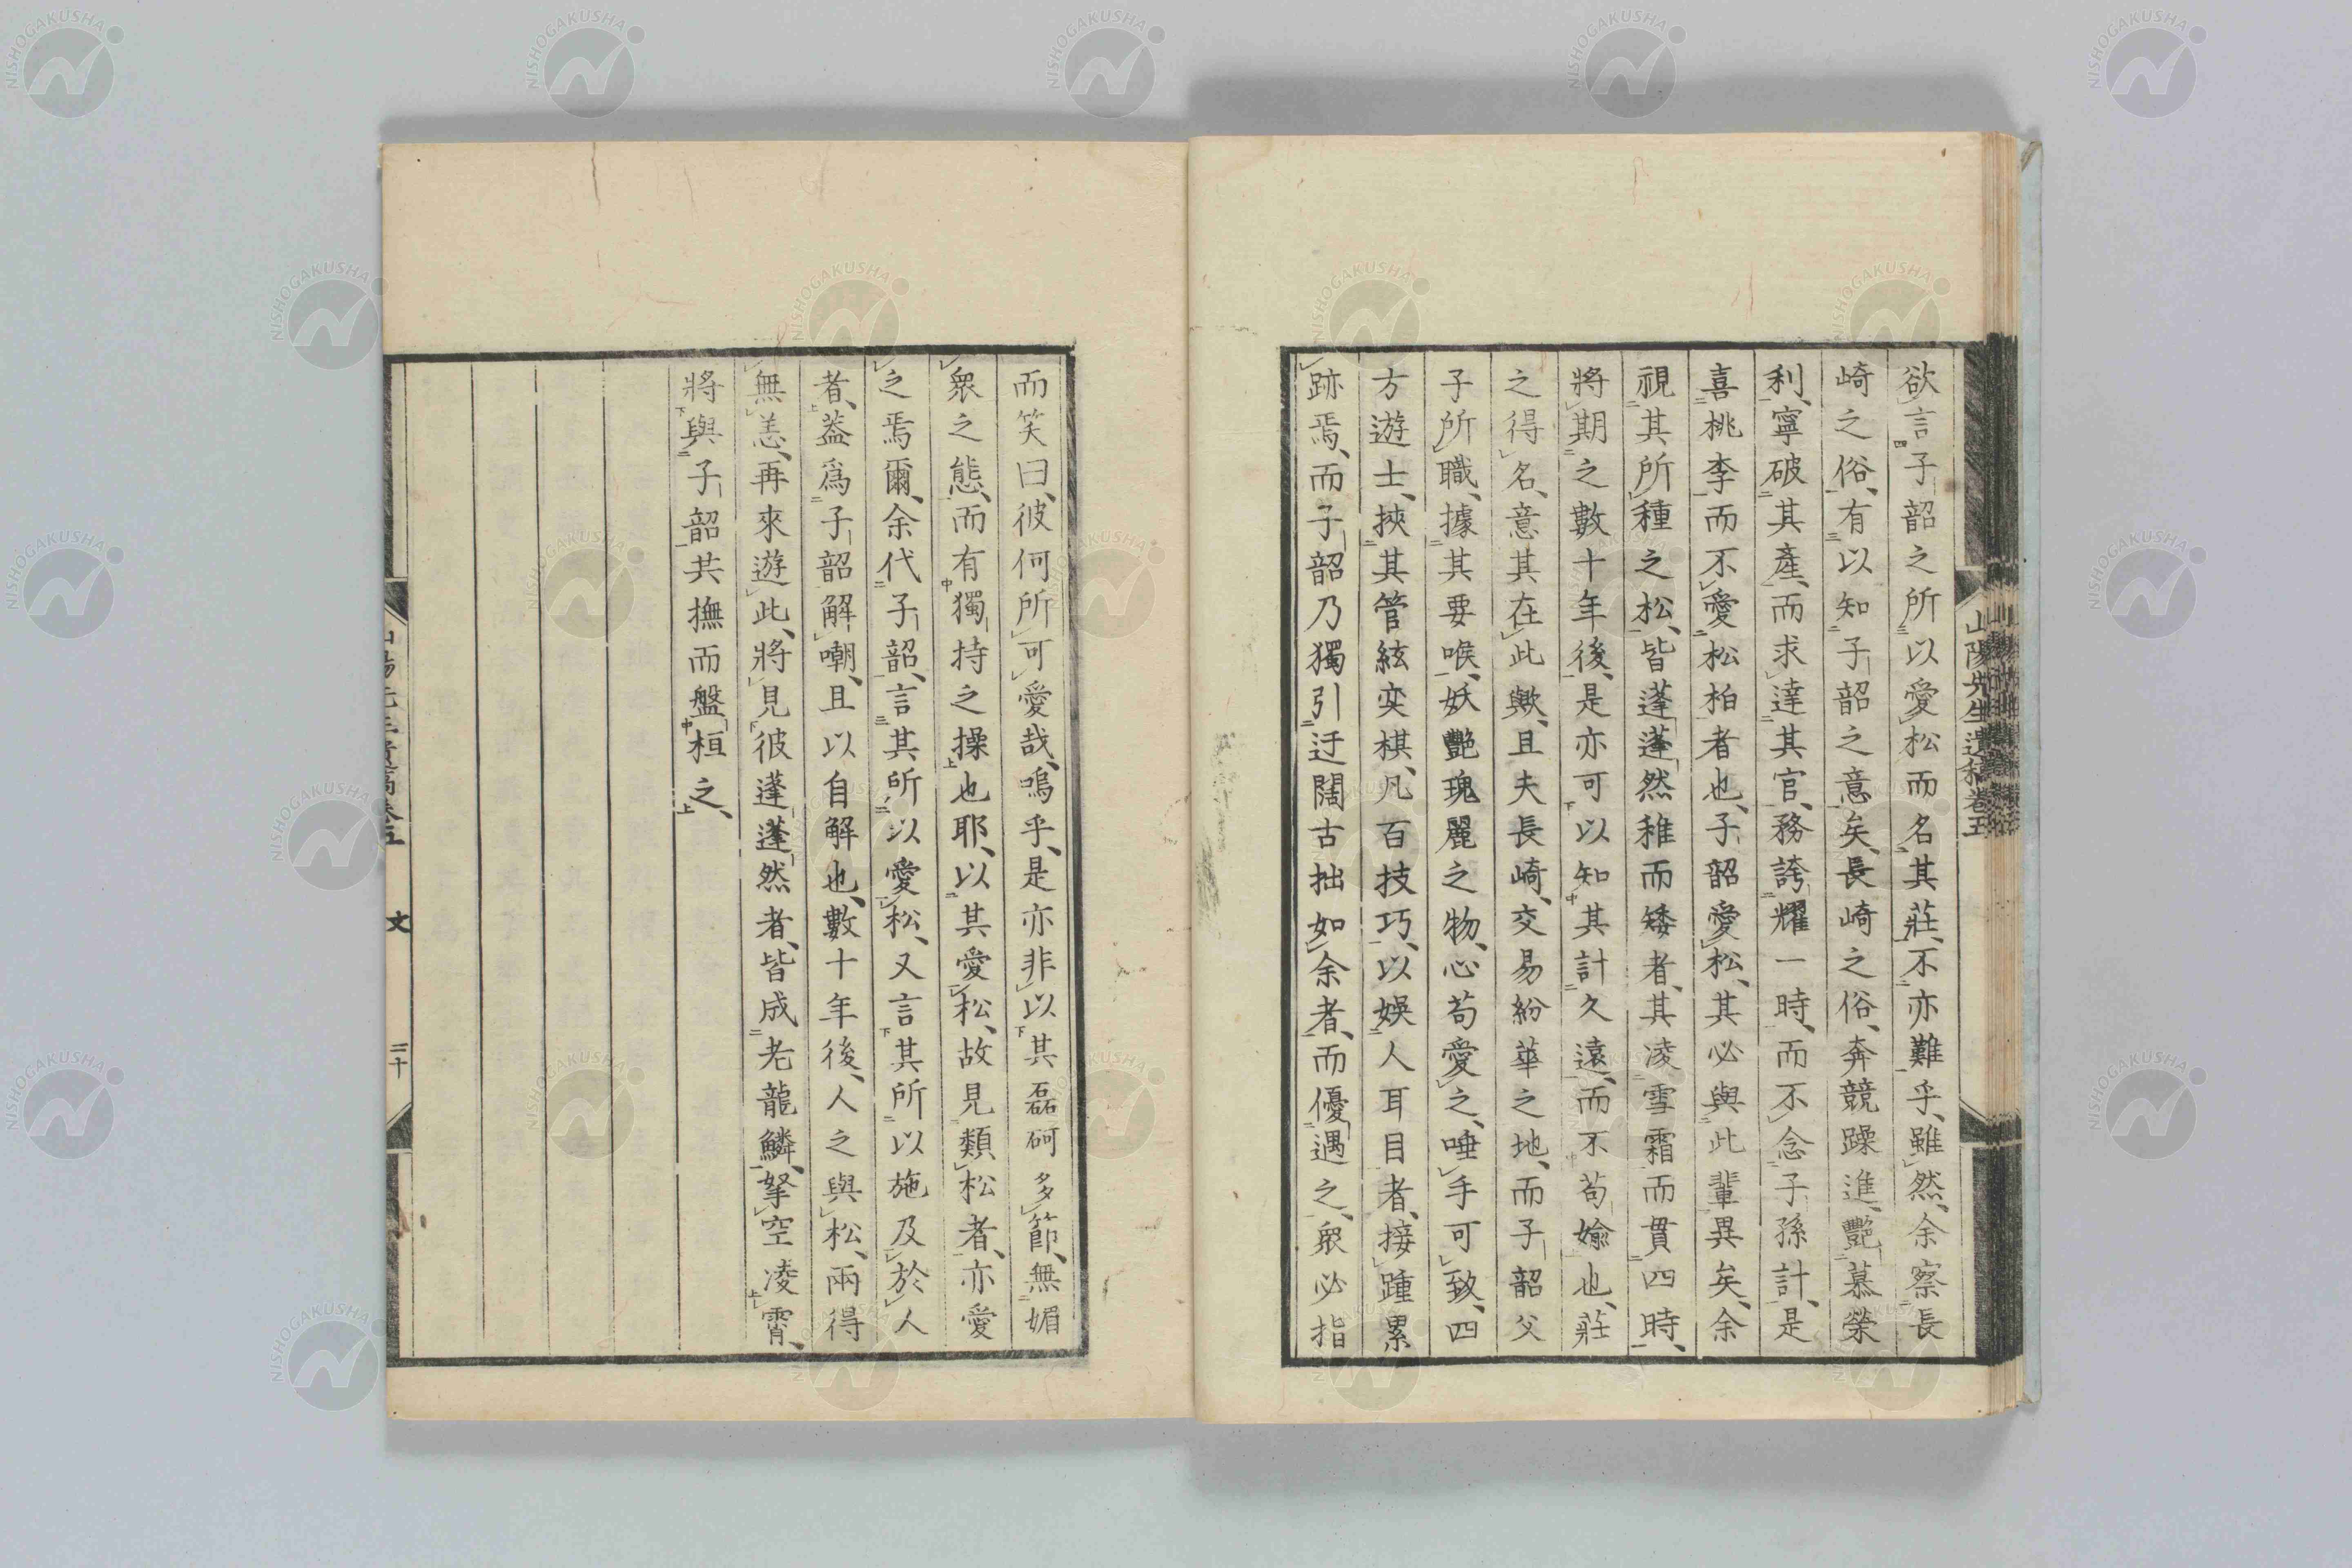 山陽先生遺稿卷五
欲言子韶之所以愛松而名其莊、不亦難乎、雖然、余察長
崎之俗、有以知子韶之意矣、長崎之俗、奔競躁進、艷慕榮
利、寧破其產、而求達其官、務誇耀一時、而不念子孫計、是
喜桃李而不愛松柏者也、子韶愛松、其必與此輩異矣、余
視其所種之松、皆蓬蓬然稚而矮者、其凌雪霜而貫四時、
將期之數十年後、是亦可以知其計久遠、而不苟媮也、莊
之得名、意其在此歟、且夫長崎、交易紛華之地、而子韶父
子所職、據其要喉、妖艷瑰麗之物、心苟愛之、唾手可致、四
方遊士、挾其管絃奕棋、凡百技巧、以娛人耳目者、接踵累
跡焉、而子韶乃獨引迂闊古拙如余者、而優遇之、眾必指
而笑曰、彼何所可愛哉、嗚乎、是亦非以其磊砢多節、無媚
眾之態、而有獨持之操也耶、以其愛松、故見類松者、亦愛
之焉爾、余代子韶、言其所以愛松、又言其所以施及於人
者、蓋爲子韶解嘲、且以自解也、數十年後、人之與松、兩得
無恙、再來遊此、將見彼蓬蓬然者、皆成老龍鱗、拏空凌霄、
將與子韶共撫而盤桓之、
文
三十